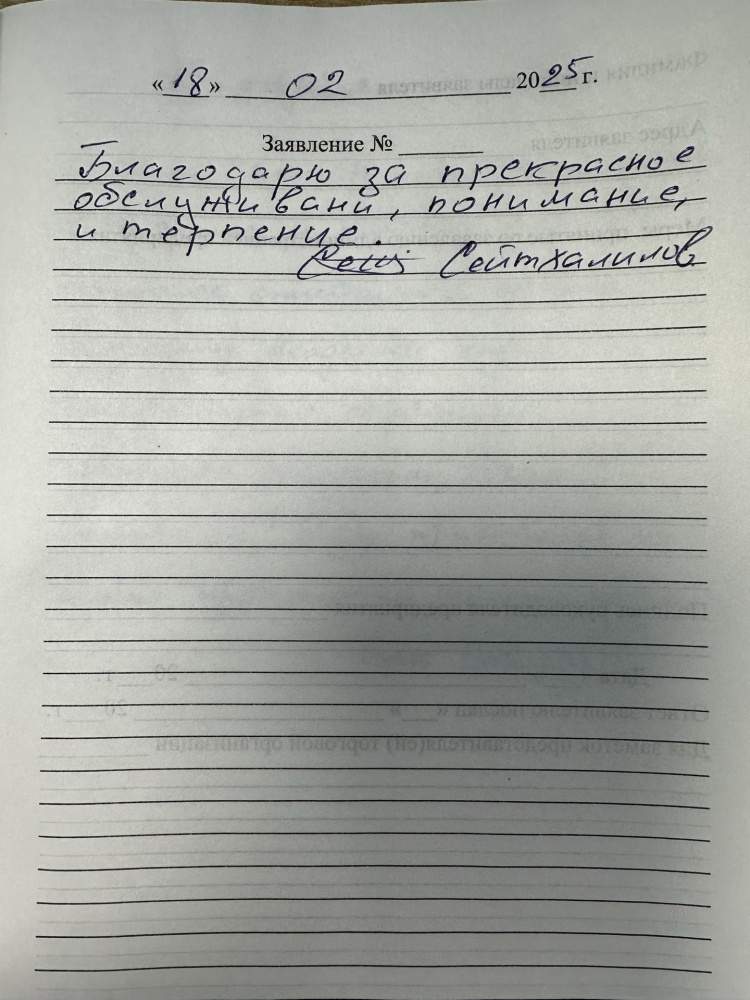 «18» 02 2025 г.
Заявление №
Благодарю за прекрасное
обслуживани, понимание,
и терпение.
Сейтхалилов